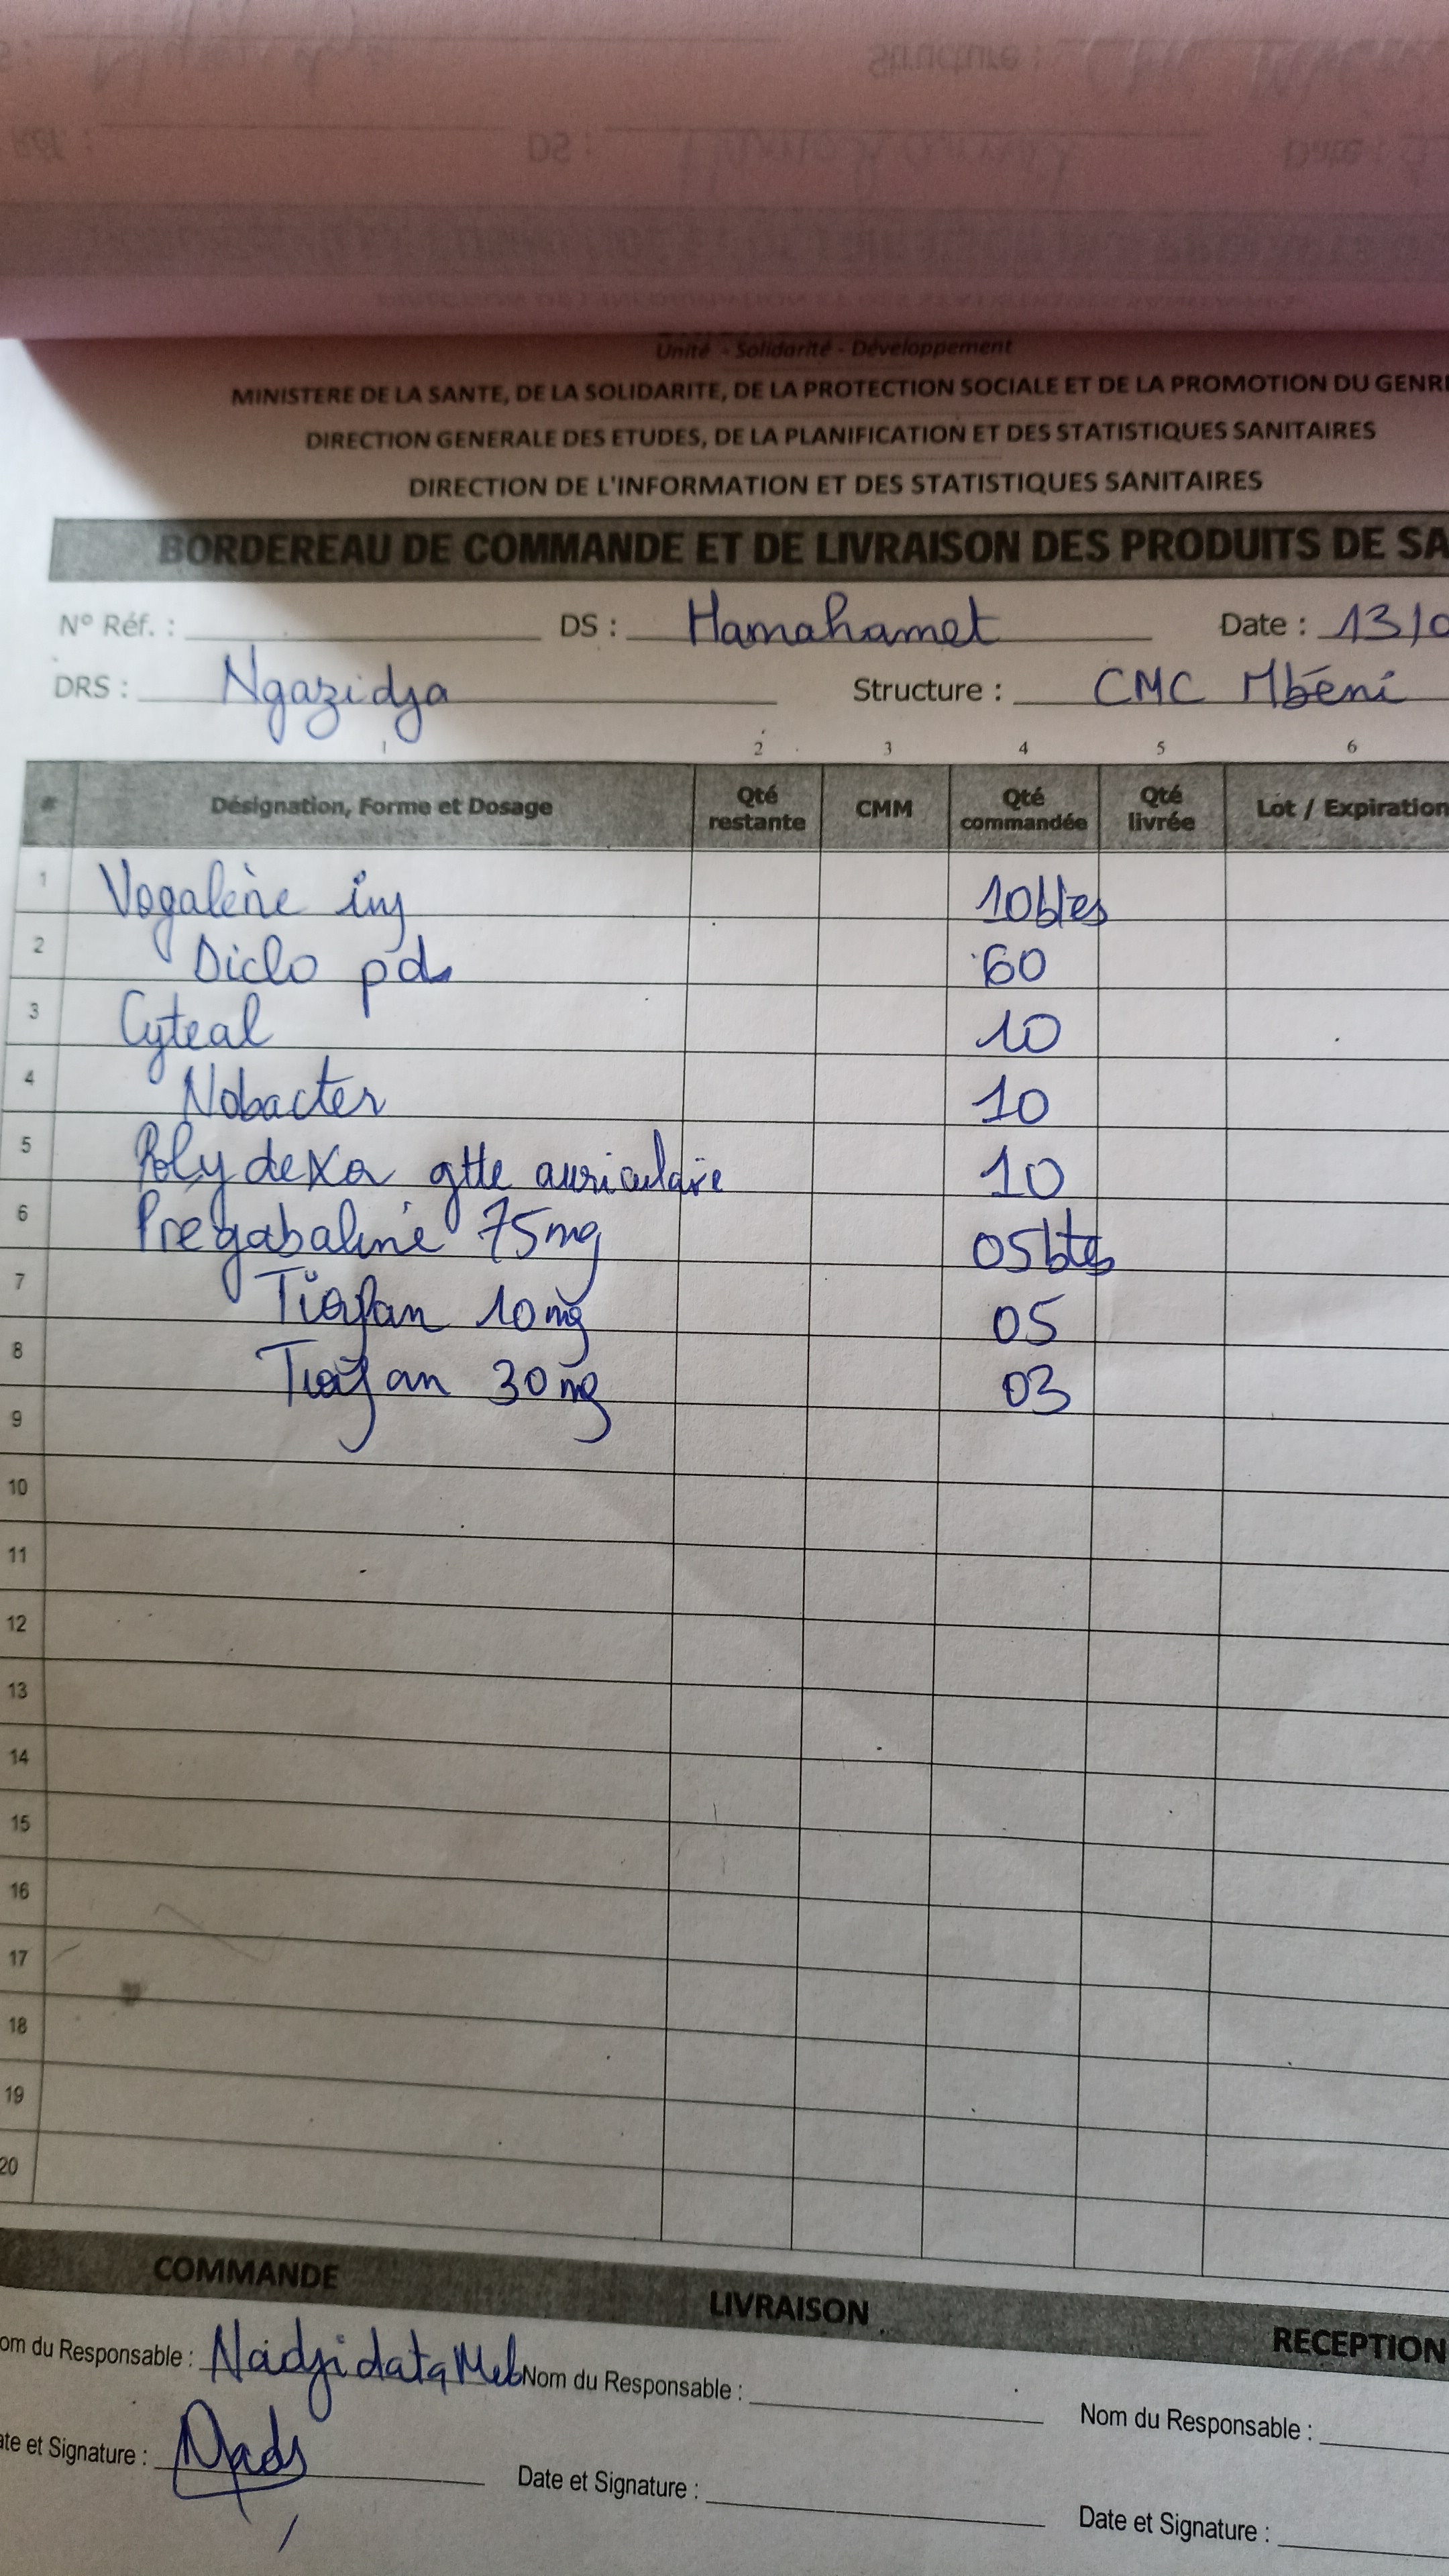 Structure :
Réf. :
DS :
Date :
Unité - Solidarité - Développement
MINISTERE DE LA SANTE, DE LA SOLIDARITE, DE LA PROTECTION SOCIALE ET DE LA PROMOTION DU GENR
DIRECTION GENERALE DES ETUDES, DE LA PLANIFICATION ET DES STATISTIQUES SANITAIRES
DIRECTION DE L'INFORMATION ET DES STATISTIQUES SANITAIRES
BORDEREAU DE COMMANDE ET DE LIVRAISON DES PRODUITS DE SA
N° Réf. : DS : Hamahamet Date : 13/0
DRS : Ngazidja Structure : CMC Mbéni
1 2 3 4 5 6
# Désignation, Forme et Dosage Qté restante CMM Qté commandée Qté livrée Lot / Expiration
1 Vogalène inj 10btes
2 Diclo pd 60
3 Cyteal 10
4 Nobacter 10
5 Polydexa gtte auriculaire 10
6 Pregabaline 75mg 05btes
7 Tiorfan 10mg 05
8 Tiorfan 30mg 03
9
10
11
12
13
14
15
16
17
18
19
20
COMMANDE LIVRAISON RECEPTION
om du Responsable : Nadjidata Nom du Responsable : Nom du Responsable :
ate et Signature : Date et Signature : Date et Signature :